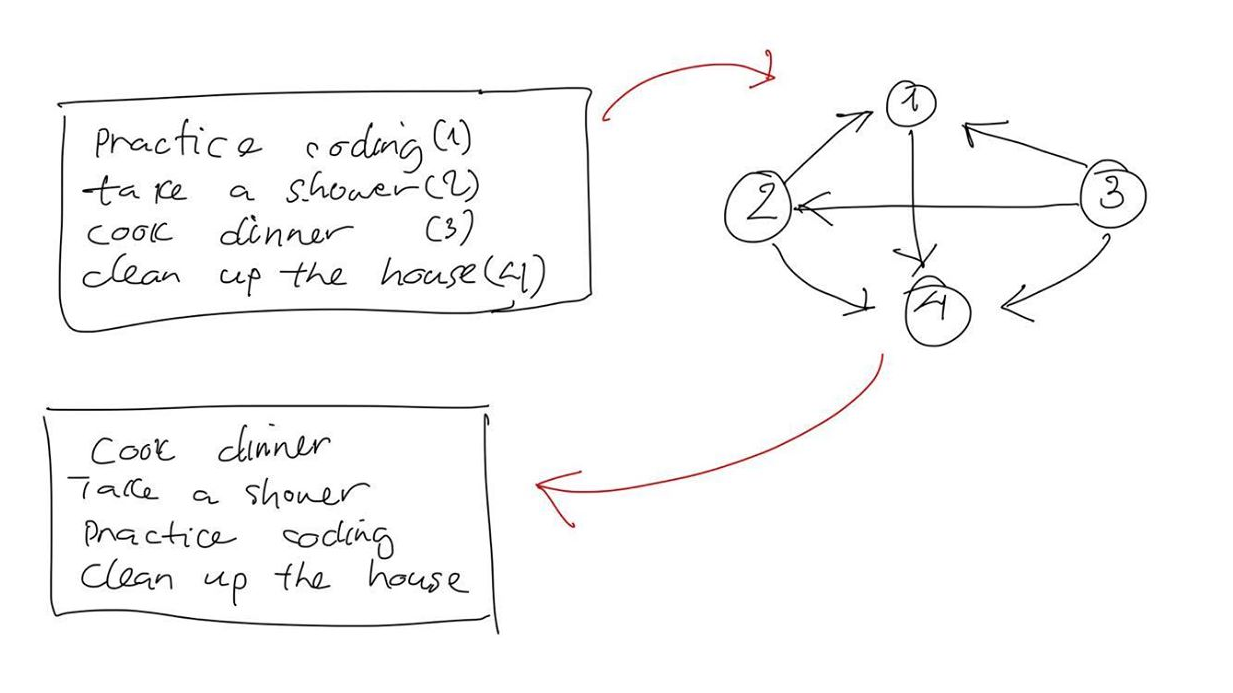 Practice coding (1)
take a shower (2)
cook dinner (3)
clean up the house (4)
1
2
3
4
Cook dinner
Take a shower
Practice coding
Clean up the house